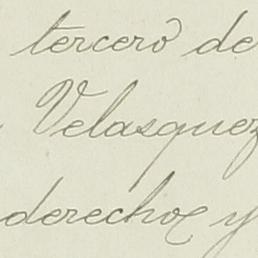 tercero de
Velasquez
derechos y